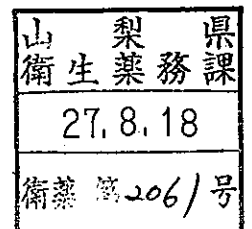 山梨県
衛生薬務課
27.8.18
衛薬第2061号